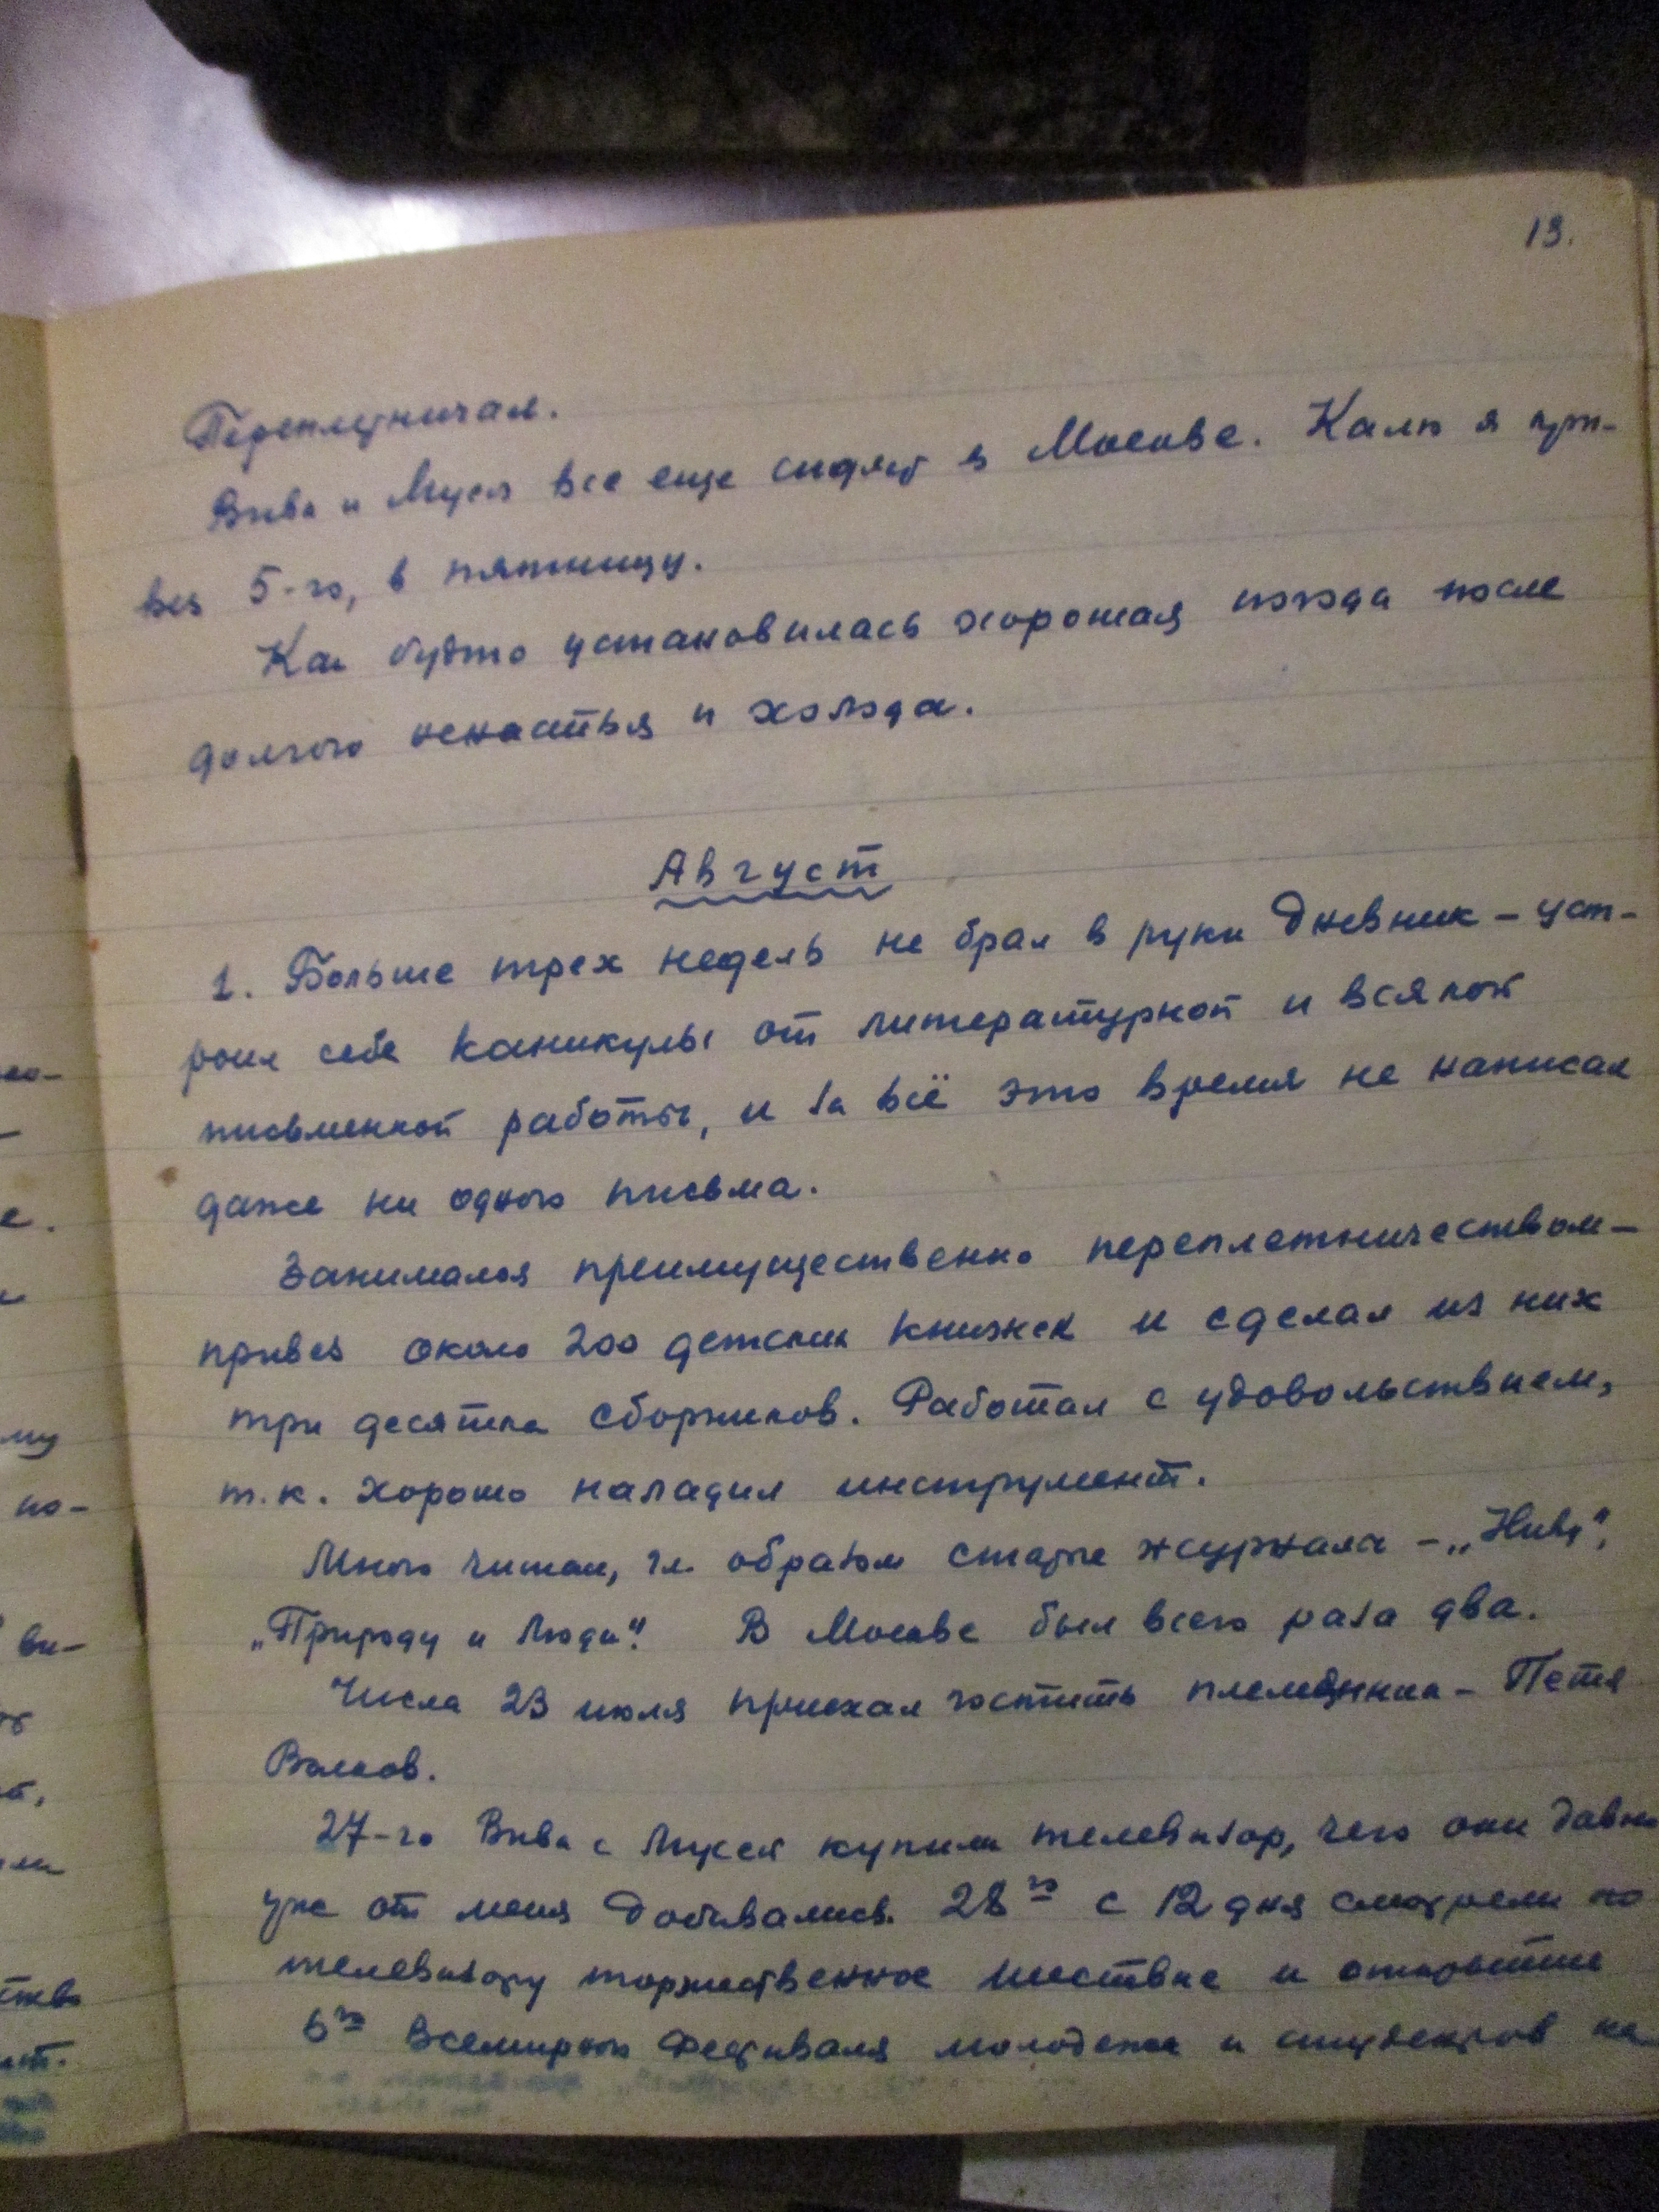 13.
Переплетничал.
Вива и Муся все еще сидят в Москве. Калю я при-
вез 5-го, в пятницу.
Как будто установилась хорошая погода после
долгого ненастья и холода.
Август
1. Больше трех недель не брал в руки дневник – уст-
роил себе каникулы от литературной и всякой
письменной работы, и за всё это время не написал
даже ни одного письма.
Занимался преимущественно переплетничеством –
привез около 200 детских книжек и сделал из них
три десятка сборников. Работал с удовольствием,
т.к. хорошо наладил инструмент.
Много читал, гл. образом старые журналы – „Ниву",
„Природу и Люди". В Москве был всего раза два.
Числа 23 июля приехал гостить племянник – Петя
Волков.
27-го Вива с Мусей купили телевизор, чего они давно
уже от меня добивались. 28го с 12 дня смотрели по
телевизору торжественное шествие и открытие
6го Всемирного Фестиваля молодежи и студентов на